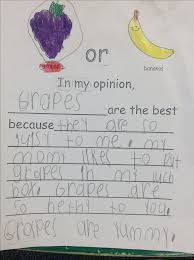 or
bananas
In my opinion,
Grapes are the best
because they are so
jusy to me. my
mom likes to put
grapes in my luch
box. Grapes are
so helthy to you.
Grapes are yummy.